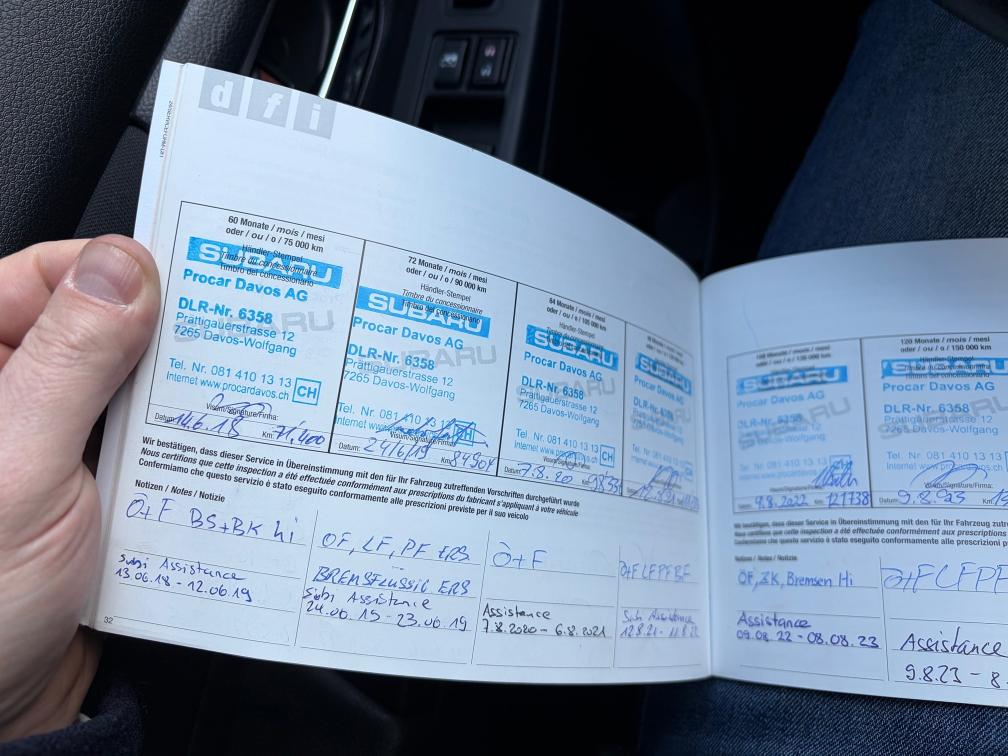 dfi
60 Monate / mois / mesi
oder / ou / o / 75 000 km
Händler-Stempel
Timbre du concessionnaire
Timbro del concessionario
SUBARU
Procar Davos AG
DLR-Nr. 6358
Prättigauerstrasse 12
7265 Davos-Wolfgang
Tel. Nr. 081 410 13 13
Internet www.procardavos.ch
CH
Visum/Signature/Firma:
Datum: 14.6.18 Km: 71'400
72 Monate / mois / mesi
oder / ou / o / 90 000 km
Händler-Stempel
Timbre du concessionnaire
Timbro del concessionario
SUBARU
Procar Davos AG
DLR-Nr. 6358
Prättigauerstrasse 12
7265 Davos-Wolfgang
Tel. Nr. 081 410
Internet
CH
Visum/Signature/Firma:
Datum: 24/6/19 Km: 84904
84 Monate / mois / mesi
oder / ou / o / 105 000 km
Händler-Stempel
Timbre du concessionnaire
Timbro del concessionario
SUBARU
Procar Davos AG
DLR-Nr. 6358
Prättigauerstrasse 12
7265 Davos-Wolfgang
Tel. Nr. 081 410 13 13
Internet www.procardavos.ch
CH
Visum/Signature/Firma:
Datum: 7.8.20 Km:
SUBARU
Procar Davos
DLR-Nr.
Prättigauerstrasse
7265 Davos
Tel. Nr. 081
Internet
Wir bestätigen, dass dieser Service in Übereinstimmung mit den für Ihr Fahrzeug zutreffenden Vorschriften durchgeführt wurde
Nous certifions que cette inspection a été effectuée conformément aux prescriptions du fabricant s'appliquant à votre véhicule
Confermiamo che questo servizio è stato eseguito conformamente alle prescrizioni previste per il suo veicolo
Notizen / Notes / Notizie
Ö+F BS+BK hi
Subi Assistance
13.06.18 - 12.06.19
ÖF, LF, PF ERS
BREMSFLÜSSIG ERS
Subi Assistance
24.06.19 - 23.06.19
Ö+F
Assistance
7.8.2020 - 6.8.2021
Ö+FLFPFBF
Subi Assistance
12.8.21 - 11.8.22
32
SUBARU
Procar Davos AG
DLR-Nr. 6358
Prättigauerstrasse 12
7265 Davos-Wolfgang
Tel. Nr. 081 410 13 13
9.8.2022 Km: 121738
120 Monate / mois / mesi
oder / ou / o / 150 000 km
Händler-Stempel
Timbre du concessionnaire
Timbro del concessionario
SUBARU
Procar Davos AG
DLR-Nr. 6358
Prättigauerstrasse 12
7265 Davos-Wolfgang
Tel. Nr. 081 410 13 13
Visum/Signature/Firma:
Wir bestätigen, dass dieser Service in Übereinstimmung mit den für Ihr Fahrzeug
Nous certifions que cette inspection a été effectuée conformément aux prescriptions
Confermiamo che questo servizio è stato eseguito conformamente alle prescrizioni
Notizen / Notes / Notizie
ÖF, ZK, Bremsen Hi
Assistance
09.08.22 - 08.08.23
Ö+FLFPF
Assistance
9.8.23 - 8.